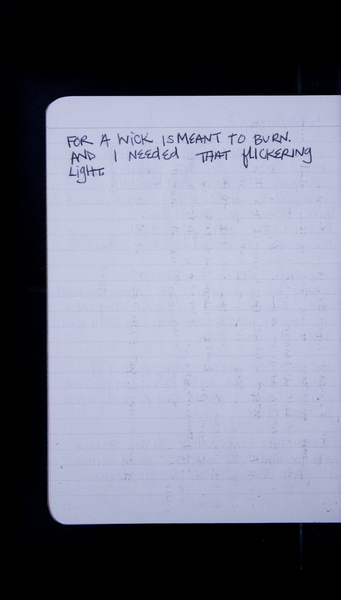 FOR A WICK IS MEANT TO BURN.
AND I NEEDED THAT flICKERING
LIGHT.